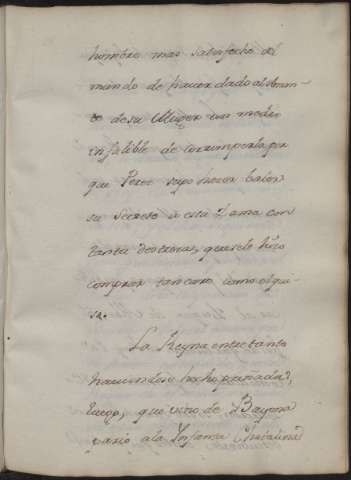 hombre mas satisfecho del
mundo de haver dado al Aman-
te de su Muger un medio
infalible de corromperla por
que Perez supo hacer valer
su Secreto à esta Dama con
tanta destreza, que se le hizo
comprar tan caro como el qui-
so.
La Reyna entretanto
haviendose hecho preñada,
luego, que vino de Bayona
pariò a la Infanta Chatalina